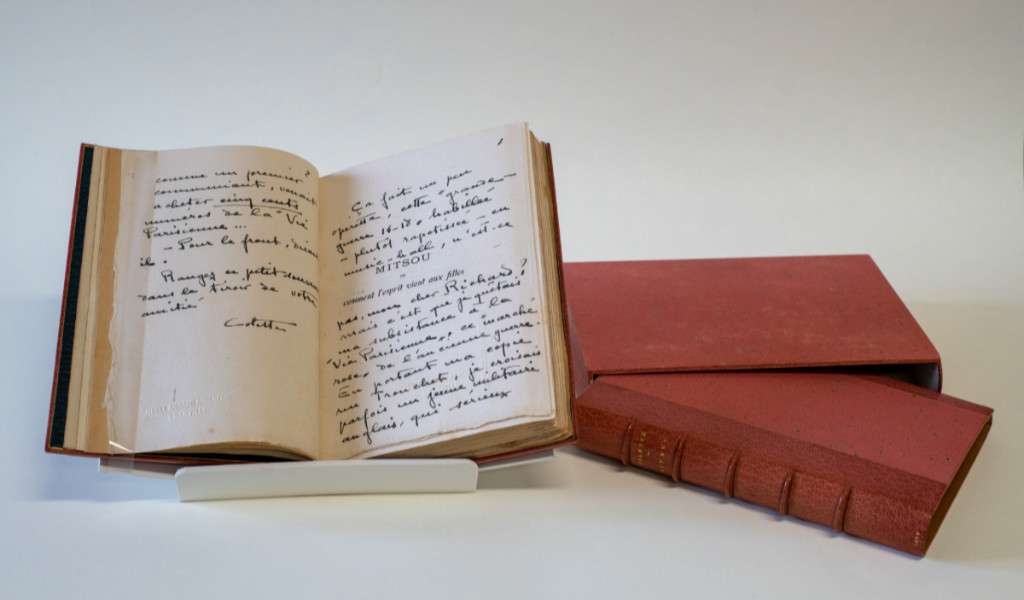 comme un premier 2
communiant, venait
acheter cinq cents
numéros de la "Vie
Parisienne"...
– Pour le front, disait
il.
Rangez ce petit souvenir
dans le tiroir de votre
amitié
Colette
1
Ça fait un peu
opérette, cette "grande
guerre 14-18" habillée
– plutôt rapetissée – en
music-hall, n'est-ce
MITSOU
comment l'esprit vient aux filles
pas, mon cher Richard?
Mais c'est que je quêtais
ma subsistance à la
Vie Parisienne, ce "marché
rose" de l'ancienne guerre.
En portant ma copie
rue Tronchet, je croisais
parfois un jeune militaire
anglais, qui, sérieux